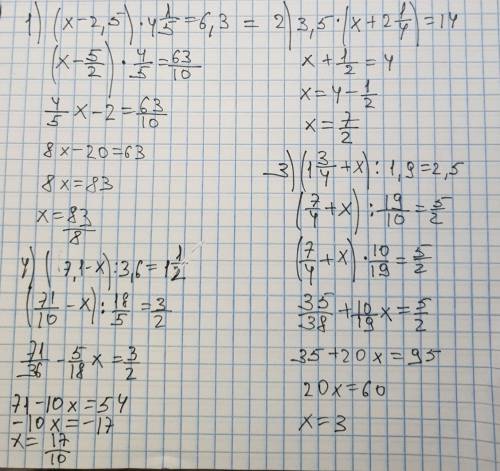 1) (x-2,5)·4 1/5=6,3 =
(x-5/2)·4/5=63/10
4/5 x-2=63/10
8x-20=63
8x=83
x=83/8
2) 3,5·(x+2 1/4)=14
x+1/2=4
x=4-1/2
x=7/2
3) (1 3/4+x):1,9=2,5
(7/4+x):19/10=5/2
(7/4+x)·10/19=5/2
35/38+10/19 x=5/2
35+20x=95
20x=60
x=3
4) (7,1-x):3,6=1 1/2
(71/10-x):18/5=3/2
71/36-5/18 x=3/2
71-10x=54
-10x=-17
x=17/10